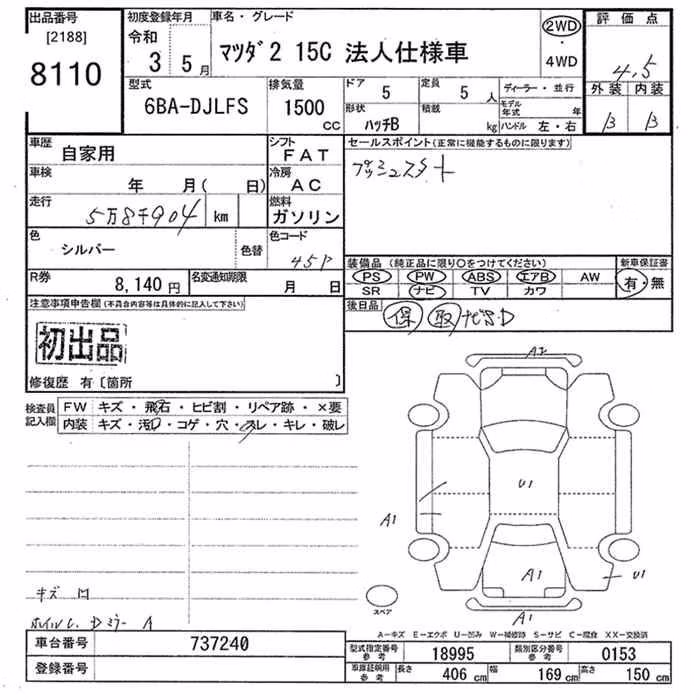 出品番号 初度登録年月 車名・グレード 評価点
[2188] 令和 2WD
8110 3 5月 マツダ2 15C 法人仕様車 ・ 4WD 4.5
型式 排気量 ドア 定員 ディーラー・並行 外装 内装
6BA-DJLFS 1500 CC 5 5人 モデル年式 年 B B
形状 積載
ハッチB kg ハンドル 左・右
車歴 自家用 シフト FAT セールスポイント(正常に機能するものに限ります)
車検 年 月( 日) 冷房 AC プッシュスタート
走行 5万8千904 km 燃料 ガソリン
色 シルバー 色替 色コード 45P
装備品(純正品に限り○をつけてください) 新車保証書
R券 8,140円 名変通知期限 月 日 PS PW ABS エアB AW 有・無
SR ナビ TV カワ
注意事項申告欄(不具合内容等は具体的に記入して下さい) 後日品 保 取 ナビSD
初出品
修復歴 有〔箇所 〕
検査員記入欄 FW キズ・飛石・ヒビ割・リペア跡・×要
内装 キズ・汚れ・コゲ・穴・スレ・キレ・破レ
A2
U1
A1
A1 U1
A1
キズ 凹
ホイルC. Dミラー A
スペア
A-キズ E-エクボ U-凹み W-補修跡 S-サビ C-腐食 XX-交換済
車台番号 737240 型式指定番号 参考 18995 類別区分番号 参考 0153
登録番号 車庫証明用 参考 長さ 406 cm 幅 169 cm 高さ 150 cm